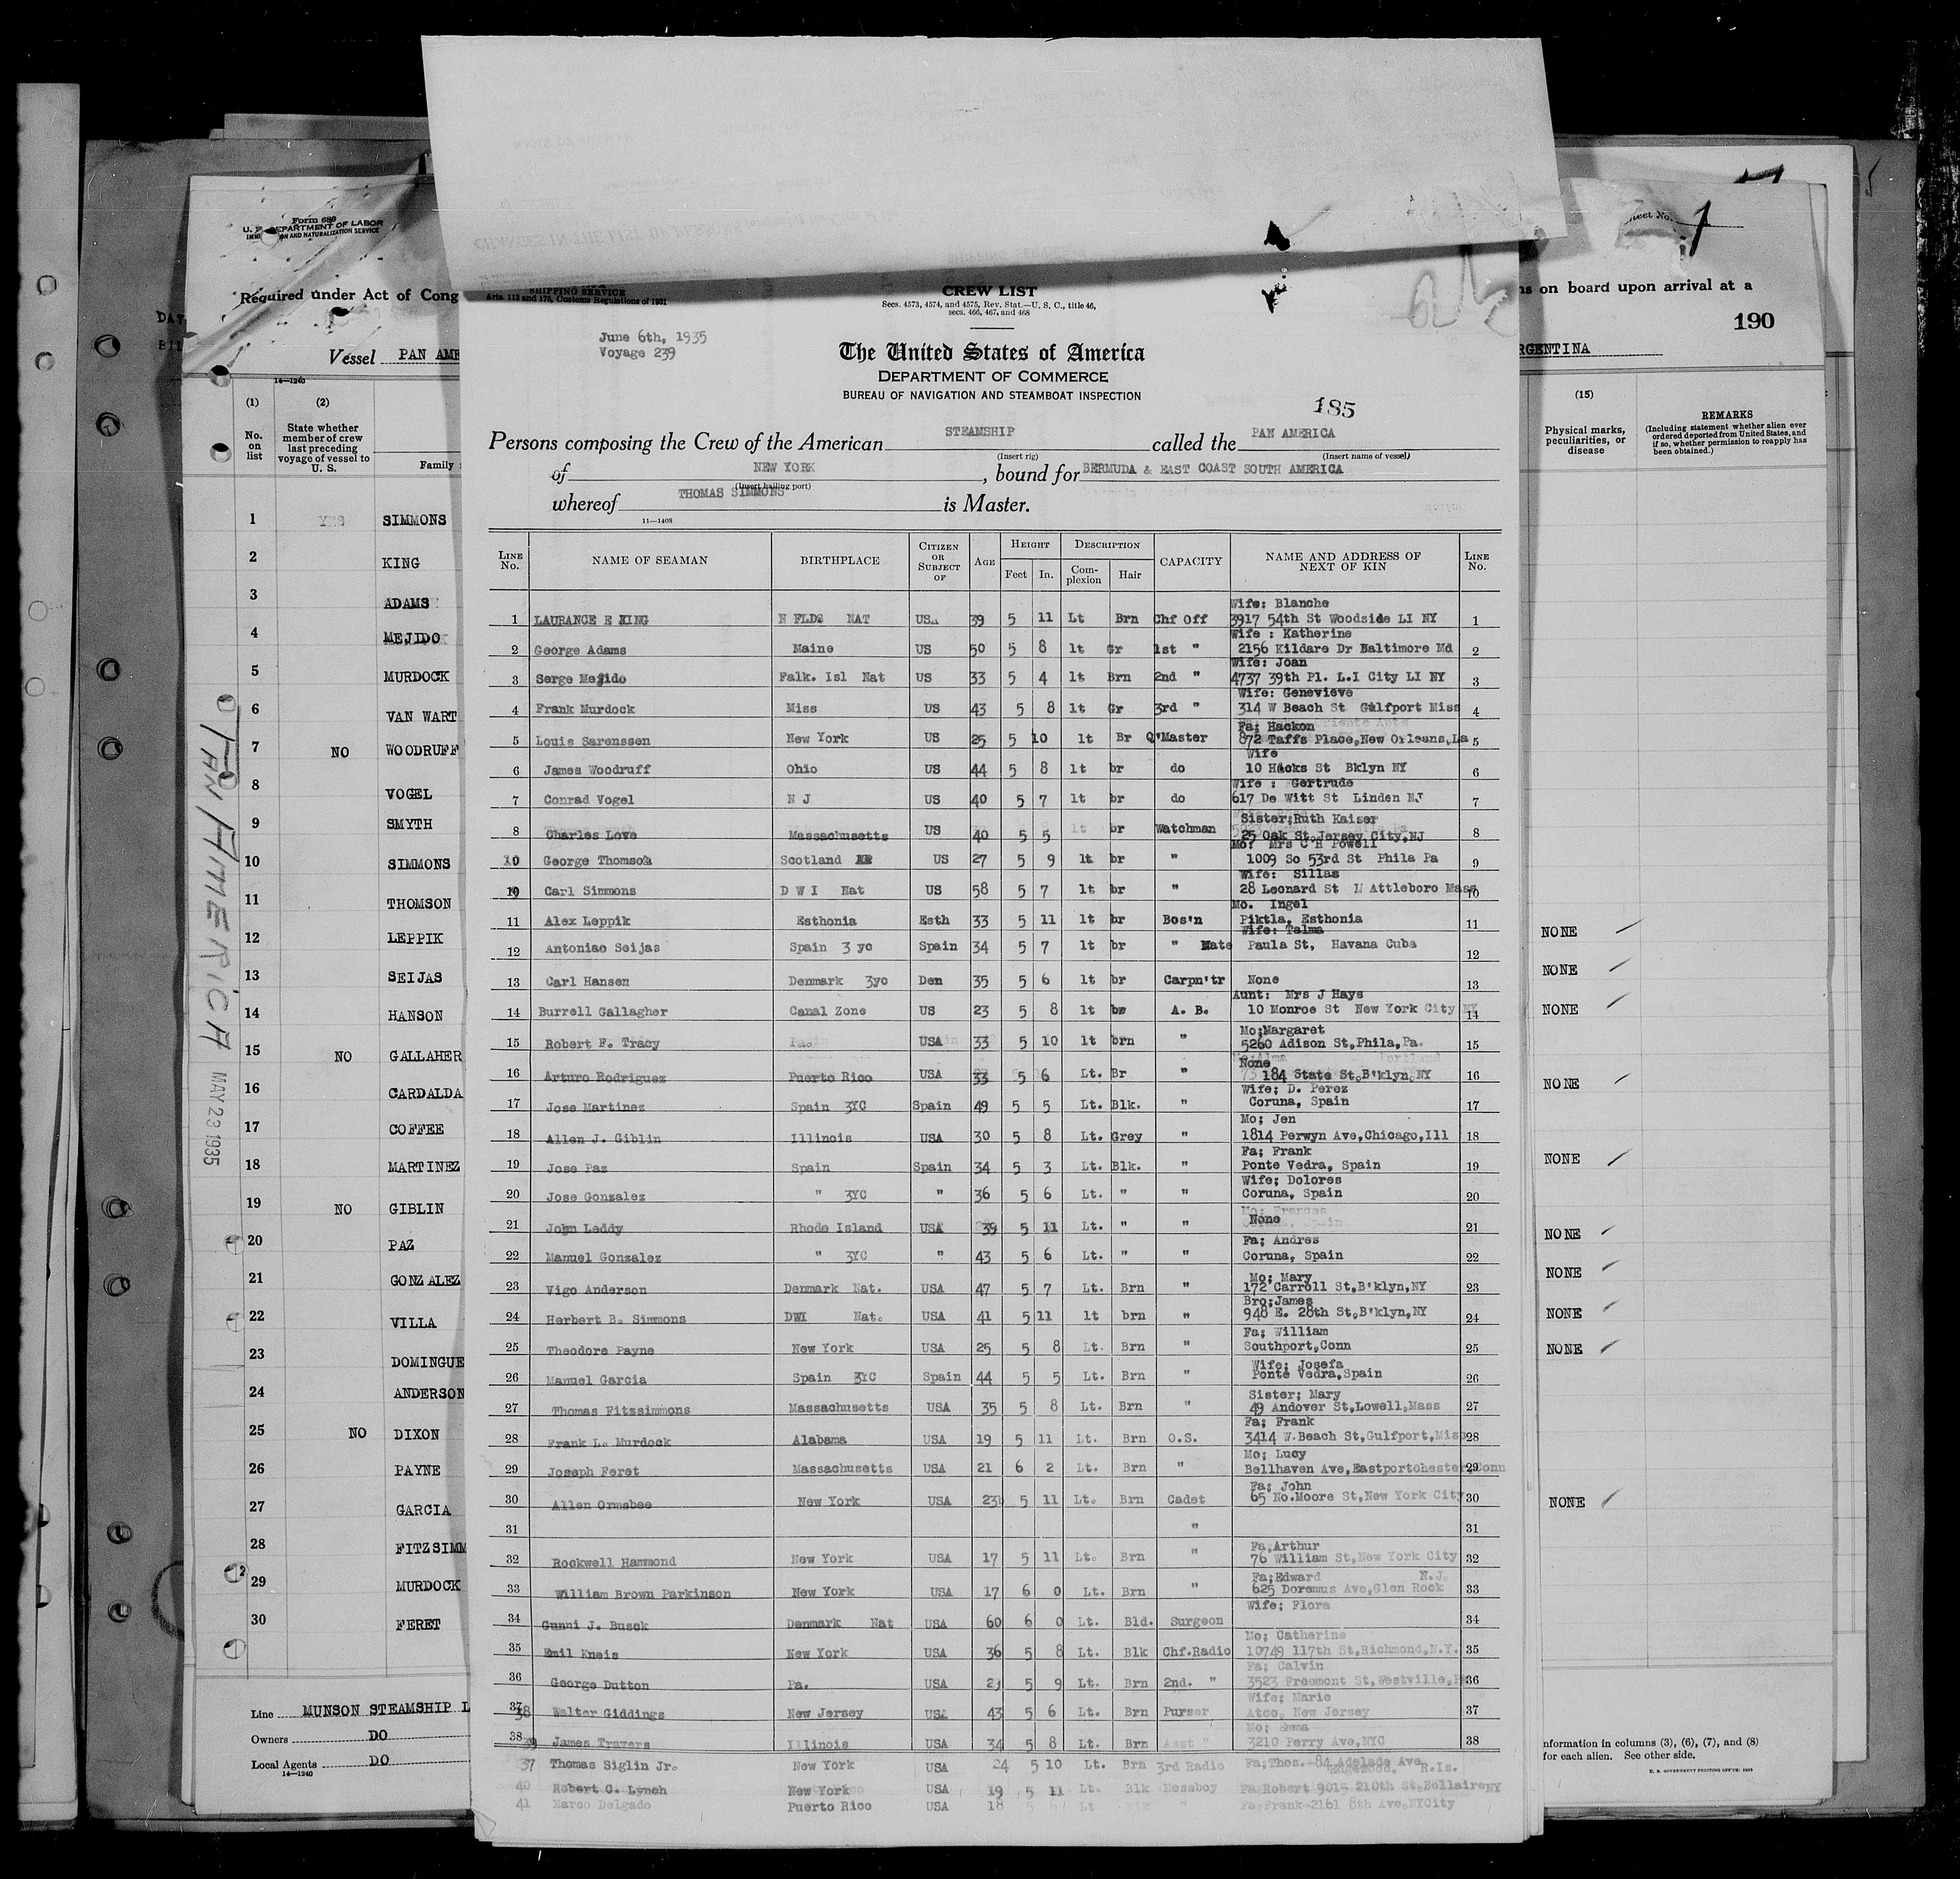 Form 689
U. S. DEPARTMENT OF LABOR
IMMIGRATION AND NATURALIZATION SERVICE
Required under Act of Cong
Vessel PAN AME
14—1240
(1) (2)
No. on list
State whether member of crew last preceding voyage of vessel to U. S.
Family
1 YES SIMMONS
2 KING
3 ADAMS
4 MEJIDO
5 MURDOCK
6 VAN WART
7 NO WOODRUFF
8 VOGEL
9 SMYTH
10 SIMMONS
11 THOMSON
12 LEPPIK
13 SEIJAS
14 HANSON
15 NO GALLAHER
16 CARDALDA
17 COFFEE
18 MARTINEZ
19 NO GIBLIN
20 PAZ
21 GONZALEZ
22 VILLA
23 DOMINGUE
24 ANDERSON
25 NO DIXON
26 PAYNE
27 GARCIA
28 FITZSIMM
29 MURDOCK
30 FERET
Line MUNSON STEAMSHIP L
Owners DO
Local Agents DO
14—1240
PAN AMERICA MAY 23 1935
SHIPPING SERVICE
Arts. 112 and 175, Customs Regulations of 1931
CREW LIST
Secs. 4573, 4574, and 4575, Rev. Stat.—U. S. C., title 46,
secs. 466, 467, and 468
June 6th, 1935
Voyage 239
The United States of America
DEPARTMENT OF COMMERCE
BUREAU OF NAVIGATION AND STEAMBOAT INSPECTION
185
Persons composing the Crew of the American STEAMSHIP called the PAN AMERICA
(Insert rig) (Insert name of vessel)
of NEW YORK, bound for BERMUDA & EAST COAST SOUTH AMERICA
(Insert hailing port)
whereof THOMAS SIMMONS is Master.
11—1408
LINE No. NAME OF SEAMAN BIRTHPLACE CITIZEN OR SUBJECT OF AGE HEIGHT Feet In. DESCRIPTION Complexion Hair CAPACITY NAME AND ADDRESS OF NEXT OF KIN LINE No.
Wife: Blanche
1 LAURANCE E KING N FLDS NAT US 39 5 11 Lt Brn Chf Off 3917 54th St Woodside LI NY 1
Wife : Katherine
2 George Adams Maine US 50 5 8 lt Gr 1st " 2156 Kildare Dr Baltimore Md 2
Wife: Joan
3 Serge Mejido Falk. Isl Nat US 33 5 4 lt Brn 2nd " 4737 39th Pl. L.I City LI NY 3
Wife: Genevieve
4 Frank Murdock Miss US 43 5 8 lt Gr 3rd " 314 W Beach St Gulfport Miss 4
Fa; Hackon
5 Louis Sarenssen New York US 25 5 10 lt Br Q'Master 872 Taffs Place,New Orleans,La 5
Wife
6 James Woodruff Ohio US 44 5 8 lt br do 10 Hicks St Bklyn NY 6
Wife : Gertrude
7 Conrad Vogel N J US 40 5 7 lt br do 617 De Witt St Linden NJ 7
Sister;Ruth Kaiser
8 Charles Love Massachusetts US 40 5 5 lt br Watchman 25 Oak St.Jersey City,NJ 8
Mo: Mrs C H Powell
10 George Thomson Scotland US 27 5 9 lt br " 1009 So 53rd St Phila Pa 9
Wife: Sillas
10 Carl Simmons D W I Nat US 58 5 7 lt br " 28 Leonard St N Attleboro Mass 10
Mo. Ingel
11 Alex Leppik Esthonia Esth 33 5 11 lt br Bos'n Piktla, Esthonia 11
Wife: Talma
12 Antoniao Seijas Spain 3 yc Spain 34 5 7 lt br " Mate Paula St, Havana Cuba 12
13 Carl Hansen Denmark 3yc Den 35 5 6 lt br Carpn'tr None 13
Aunt: Mrs J Hays
14 Burrell Gallagher Canal Zone US 23 5 8 lt br A. B. 10 Monroe St New York City NY 14
Mo;Margaret
15 Robert F. Tracy Pa. USA 33 5 10 lt brn " 5260 Adison St,Phila,Pa. 15
None
16 Arturo Rodriguez Puerto Rico USA 33 5 6 Lt. Br " 184 State St.B'klyn.NY 16
Wife; D. Perez
17 Jose Martinez Spain 3YC Spain 49 5 5 Lt. Blk. " Coruna, Spain 17
Mo; Jen
18 Allen J. Giblin Illinois USA 30 5 8 Lt. Grey " 1814 Perwyn Ave,Chicago,Ill 18
Fa; Frank
19 Jose Paz Spain Spain 34 5 3 Lt. Blk. " Ponte Vedra, Spain 19
Wife; Dolores
20 Jose Gonzalez " 3YC " 36 5 6 Lt. " " Coruna, Spain 20
21 John Leddy Rhode Island USA 39 5 11 Lt. " " None 21
Fa; Andres
22 Manuel Gonzalez " 3YC " 43 5 6 Lt. " " Coruna, Spain 22
Mo; Mary
23 Vigo Anderson Denmark Nat. USA 47 5 7 Lt. Brn " 172 Carroll St,B'klyn,NY 23
Bro;James
24 Herbert B. Simmons DWI Nat. USA 41 5 11 lt brn " 948 E. 28th St,B'klyn,NY 24
Fa; William
25 Theodore Payne New York USA 25 5 8 Lt. Brn " Southport,Conn 25
Wife; Josefa
26 Manuel Garcia Spain 3YC Spain 44 5 5 Lt. Brn " Ponte Vedra,Spain 26
Sister; Mary
27 Thomas Fitzsimmons Massachusetts USA 35 5 8 Lt. Brn " 49 Andover St,Lowell,Mass 27
Fa; Frank
28 Frank L. Murdock Alabama USA 19 5 11 Lt. Brn O.S. 3414 W.Beach St,Gulfport,Mis 28
Mo; Lucy
29 Joseph Feret Massachusetts USA 21 6 2 Lt. Brn " Bellhaven Ave,Eastportchester,Conn 29
Fa; John
30 Allen Ormsbee New York USA 23 5 11 Lt. Brn Cadet 65 No.Moore St,New York City 30
31 " 31
Fa,Arthur
32 Rockwell Hammond New York USA 17 5 11 Lt. Brn " 76 William St,New York City 32
Fa;Edward N.J.
33 William Brown Parkinson New York USA 17 6 0 Lt. Brn " 625 Doremus Ave,Glen Rock 33
Wife; Flora
34 Gunni J. Busck Denmark Nat USA 60 6 0 Lt. Bld. Surgeon 34
Mo; Catherine
35 Emil Kneis New York USA 36 5 8 Lt. Blk Chf.Radio 10749 117th St,Richmond,N.Y. 35
Fa; Calvin
36 George Dutton Pa. USA 23 5 9 Lt. Brn 2nd. " 3523 Freemont St,Westville, 36
Wife; Marie
38 Walter Giddings New Jersey USA 43 5 6 Lt. Brn Purser Atco, New Jersey 37
Mo; Emma
39 James Travers Illinois USA 34 5 8 Lt. Brn Asst " 3210 Perry Ave,NYC 38
37 Thomas Siglin Jr. New York USA 24 5 10 Lt. Brn 3rd Radio Fa;Thos. 84 Adelade Ave
Edgewood. R.Is.
40 Robert C. Lynch New York USA 19 5 11 Lt. Blk Messboy Fa;Robert 9015 210th St.Bellaire NY
41 Marco Delgado Puerto Rico USA 18 Lt. " Fa;Frank-2161 8th Ave,NYCity
Sheet No. 1
ns on board upon arrival at a
190
RGENTINA
(15)
Physical marks, peculiarities, or disease
REMARKS
(Including statement whether alien ever ordered deported from United States, and if so, whether permission to reapply has been obtained.)
NONE
NONE
NONE
NONE
NONE
NONE
NONE
NONE
NONE
NONE
nformation in columns (3), (6), (7), and (8)
for each alien. See other side.
U. S. GOVERNMENT PRINTING OFFICE